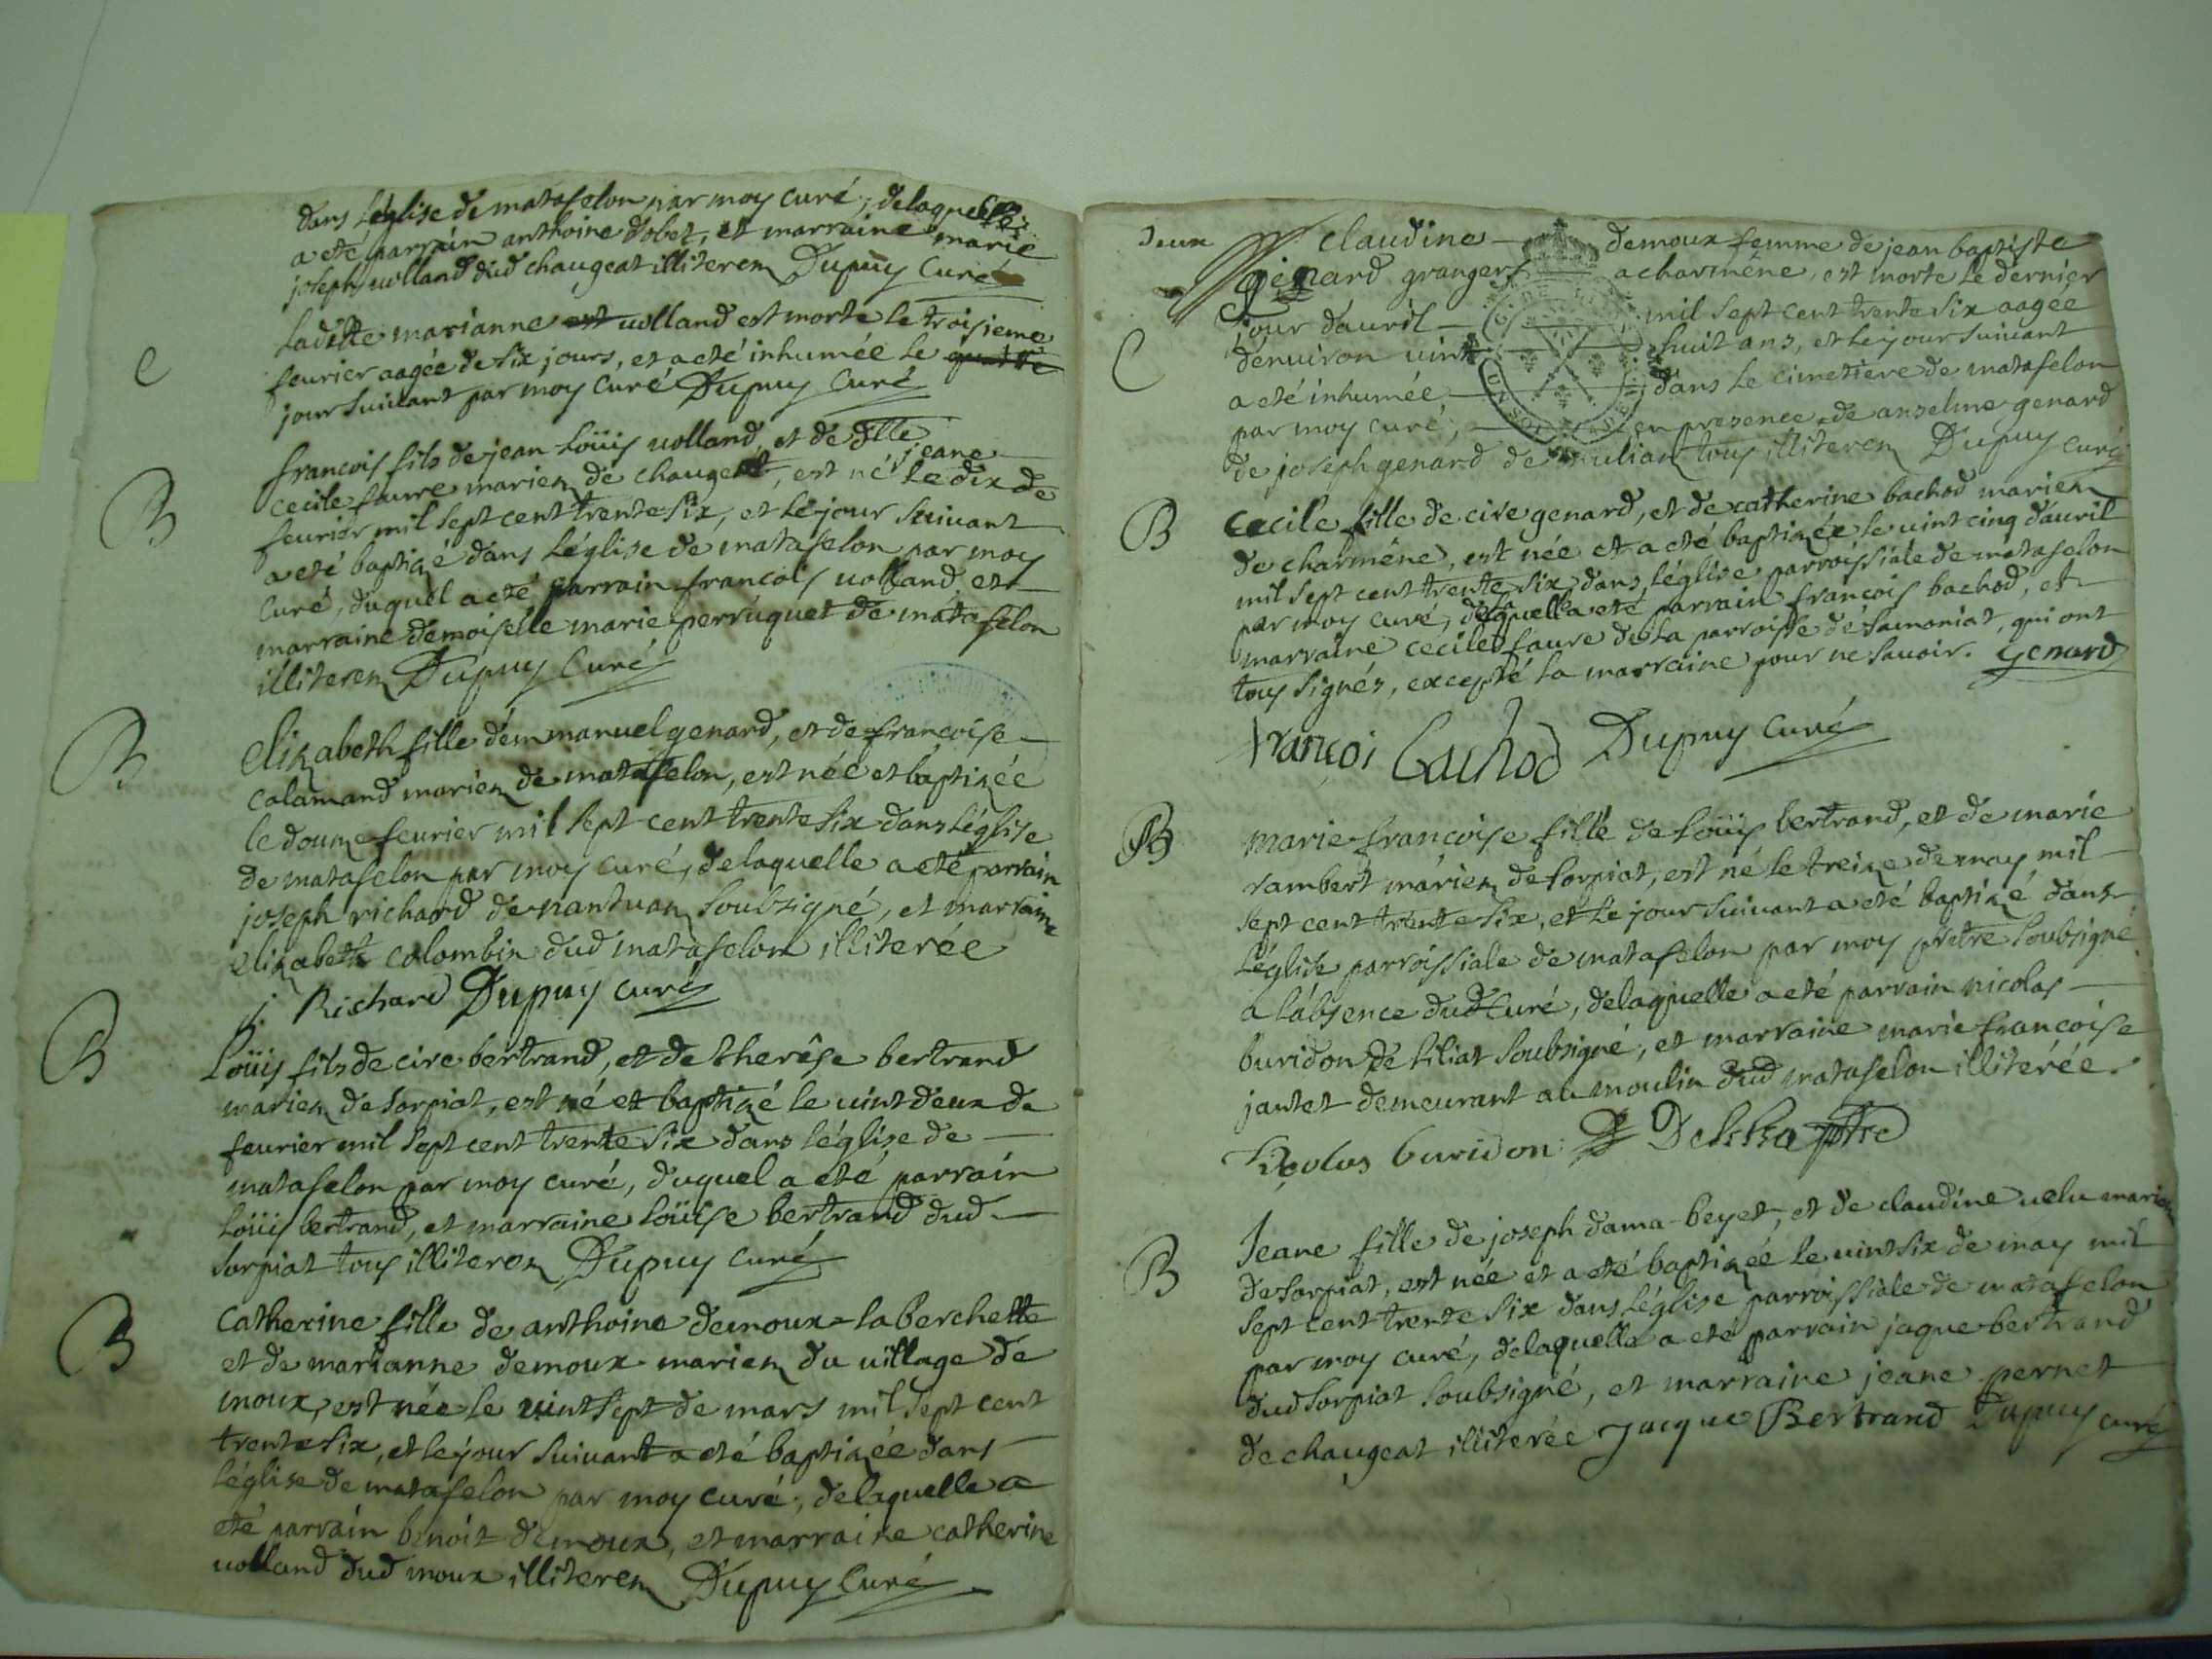 dans l'église de matafelon par moy curé, delaquelle
a eté parrain anthoine dobet, et marraine marie
joseph uolland dud chaugeat illiterez Dupuy Curé
C
Ladîtte marianne est uolland est morte le troisieme
feurier aagée de six jours, et a eté inhumée le quatre
jour suiuant par moy Curé Dupuy Curé
B
francois fils de jean Loüis uolland, et de dlle jeane
cecile faure mariez de chaugeat, est né le dix de
feurier mil sept cent trente six, et le jour suiuant
a eté baptizé dans l'église de matafelon par moy
Curé, duquel a eté parrain francois uolland et
marraine demoiselle marie perruquet de matafelon
illiterez Dupuy Curé
B
Elizabeth fille d'emmanuel genard, et de francoise
calamand mariez de matafelon, est née et baptizée
le douze feurier mil sept cent trente six dans l'église
de matafelon par moy curé, delaquelle a eté parrain
joseph richard de nantuaz soubsigné, et marraine
elizabeth colombin dud matafelon illiterée
j Richard Dupuy curé
B
Loüis fils de cire bertrand, et de therése bertrand
mariez de sorpiat, est né et baptizé le uint deux de
feurier mil sept cent trente six dans l'église de
matafelon par moy curé, duquel a eté parrain
Loüis bertrand, et marraine Loüise bertrand dud
sorpiat tous illiterez Dupuy curé
B
Catherine fille de anthoine demoux-laberchette
et de marianne demoux mariez du uillage de
moux, est née le uint sept de mars mil sept cent
trente six, et le jour suiuant a eté baptizée dans
l'église de matafelon par moy curé, delaquelle a
eté parrain benoit demoux, et marraine catherine
uolland dud moux illiterez Dupuy Curé
deux
Claudine demoux femme de jean baptiste
genard granger a charméne, est morte le dernier
jour d'auril mil sept cent trente six aagée
C
denuiron uint huit ans, et le jour suiuant
a eté inhumée dans le cimetiere de matafelon
par moy curé, en presence de anselme genard
de joseph genard de tous illiterez Dupuy curé
B
Cecile fille de cire genard, et de catherine bachod mariez
de charméne, est née et a eté baptizée le uint cinq d'auril
mil sept cent trente six dans l'église parroissiale de matafelon
par moy curé, de laquella eté parrain françois bachod, et
marraine cecile faure de la parroisse de samoniat, qui ont
tous signés, excepté la marraine pour ne sauoir. Genard
françoi Bachod Dupuy curé
B
marie francoise fille de Loüis bertrand, et de marie
rambert mariez de sorpiat, est né le treize de may mil
sept cent trente six, et le jour suiuant a eté baptizé dans
l'église parroissiale de matafelon par moy prêtre soubsigné
a l'absence dud Curé, delaquelle a eté parrain nicolas
buridon de siliat soubsigné, et marraine marie francoise
jantet demeurant au moulin dud matafelon illiterée.
buridon ptre
B
Jeane fille de joseph dama-beyet, et de claudine uelu mariez
de sorpiat, est née et a eté baptizée le uint six de may mil
sept cent trente six dans l'église parroissiale de matafelon
par moy curé, delaquelle a eté parrain jaque bertrand
dud sorpiat soubsigné, et marraine jeane pernet
de chaugeat illiterée Jacque Bertrand Dupuy curé